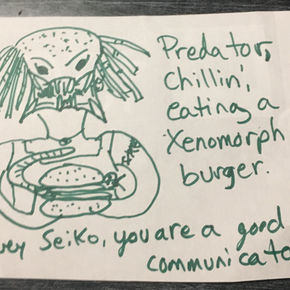 Predator,
Chillin',
eating a
Xenomorph
burger.
Hey Seiko, you are a good
communicato